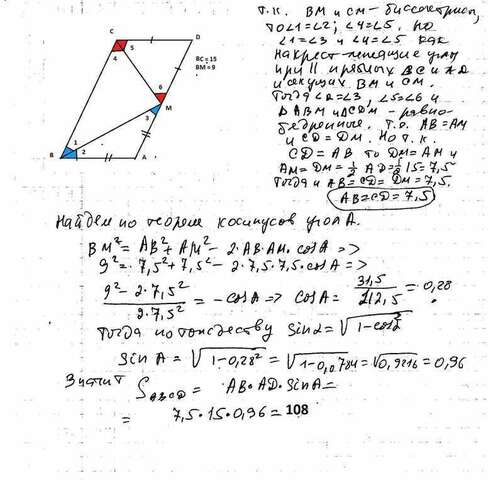 C
D
5
4
BC = 15
BM = 9
6
M
3
1
2
B
A
Т.к. BM и CM - биссектрисы,
то ∠1=∠2; ∠4=∠5. Но
∠1=∠3 и ∠4=∠5 как
накрест лежащие углы
при || прямых BC и AD
и секущих BM и CM.
Тогда ∠2=∠3, ∠5=∠6 и
△ABM и △CDM - равно-
бедренные. Т.е. AB=AM
и CD=DM. Но т.к.
CD=AB то DM=AM и
AM=DM=1/2 AD=1/2·15=7,5
Тогда и AB=CD=DM=7,5.
AB=CD=7,5
Найдем по теореме косинусов угол A.
BM²=AB²+AM²-2·AB·AM·cosA=>
9²=7,5²+7,5²-2·7,5·7,5·cosA=>
(9²-2·7,5²)/(2·7,5²)=-cosA=> cosA=31,5/112,5=0,28
Тогда по тождеству sinα=√(1-cos²)
sinA=√(1-0,28²)=√(1-0,0784)=√0,9216=0,96
Значит S_ABCD=AB·AD·sinA=
=7,5·15·0,96=108